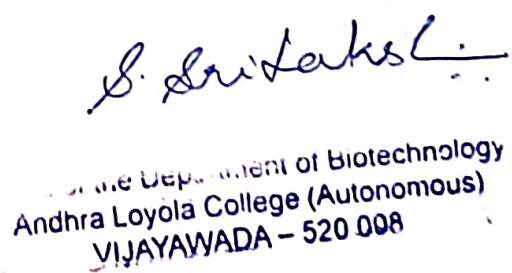 S. Sri Laksh
the Department of Biotechnology
Andhra Loyola College (Autonomous)
VIJAYAWADA – 520 008